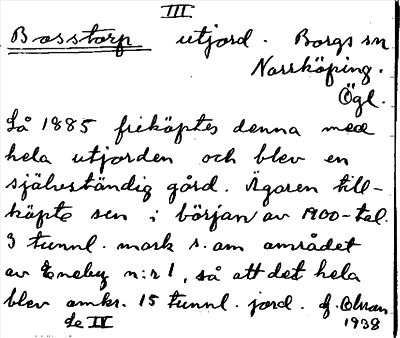 III
Bosstorp utjord. Borgs sn
Norrköping.
Ögl.
Så 1885 friköptes denna med
hela utjorden och blev en
självständig gård. Ägaren till-
köpte sen i början av 1900-tal.
3 tunnl. mark s. om området
av Eneby n:r 1, så att det hela
blev omkr. 15 tunnl. jord. g. Olsson
Se IV 1938